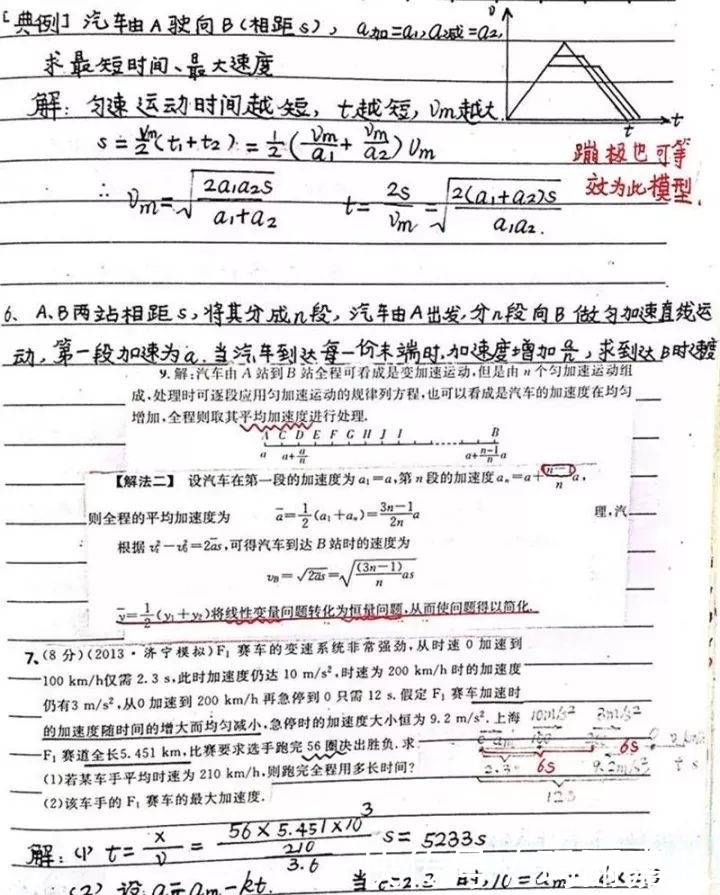 [典例] 汽车由A驶向B(相距s), a加=a₁, a减=a₂,
求最短时间、最大速度
解: 匀速运动时间越短, t越短, υm越大
s = υm/2 (t₁+t₂) = 1/2 (υm/a₁ + υm/a₂) υm
∴ υm = √(2a₁a₂s/(a₁+a₂)) t = 2s/υm = √(2(a₁+a₂)s/(a₁a₂)).
υ
t
t
蹦极也可等
效为此模型.
6、A、B两站相距s, 将其分成n段, 汽车由A出发, 分n段向B做匀加速直线运
动, 第一段加速为a. 当汽车到达每一份末端时, 加速度增加a/n, 求到达B时速度
9. 解:汽车由 A 站到 B 站全程可看成是变加速运动,但是由 n 个匀加速运动组
成,处理时可逐段应用匀加速运动的规律列方程,也可以看成是汽车的加速度在均匀
增加,全程则取其平均加速度进行处理.
A C D E F G H J I B
a a+a/n a+(n-1)/n a
【解法二】 设汽车在第一段的加速度为 a₁=a,第 n 段的加速度 aₙ=a+(n-1)/n a,
则全程的平均加速度为 ā=1/2(a₁+aₙ)=(3n-1)/2n a 理,汽
根据 vₜ²-v₀²=2ās,可得汽车到达 B 站时的速度为
v_B=√(2ās)=√((3n-1)/n as)
ȳ=1/2(y₁+y₂)将线性变量问题转化为恒量问题,从而使问题得以简化.
7、(8 分)(2013·济宁模拟)F₁ 赛车的变速系统非常强劲,从时速 0 加速到
100 km/h仅需 2.3 s,此时加速度仍达 10 m/s²,时速为 200 km/h 时的加速度
仍有3 m/s²,从0 加速到 200 km/h 再急停到 0 只需 12 s. 假定 F₁ 赛车加速时
的加速度随时间的增大而均匀减小,急停时的加速度大小恒为 9.2 m/s². 上海
F₁ 赛道全长5.451 km,比赛要求选手跑完 56 圈决出胜负.求:
(1)若某车手平均时速为 210 km/h,则跑完全程用多长时间?
(2)该车手的 F₁ 赛车的最大加速度.
10m/s² 3m/s²
6s
2.3 6s 9.2m/s² t s
12s
解: (1) t = x/υ = (56×5.451×10³)/(210/3.6) s = 5233s
(2) 设 a=am-kt.